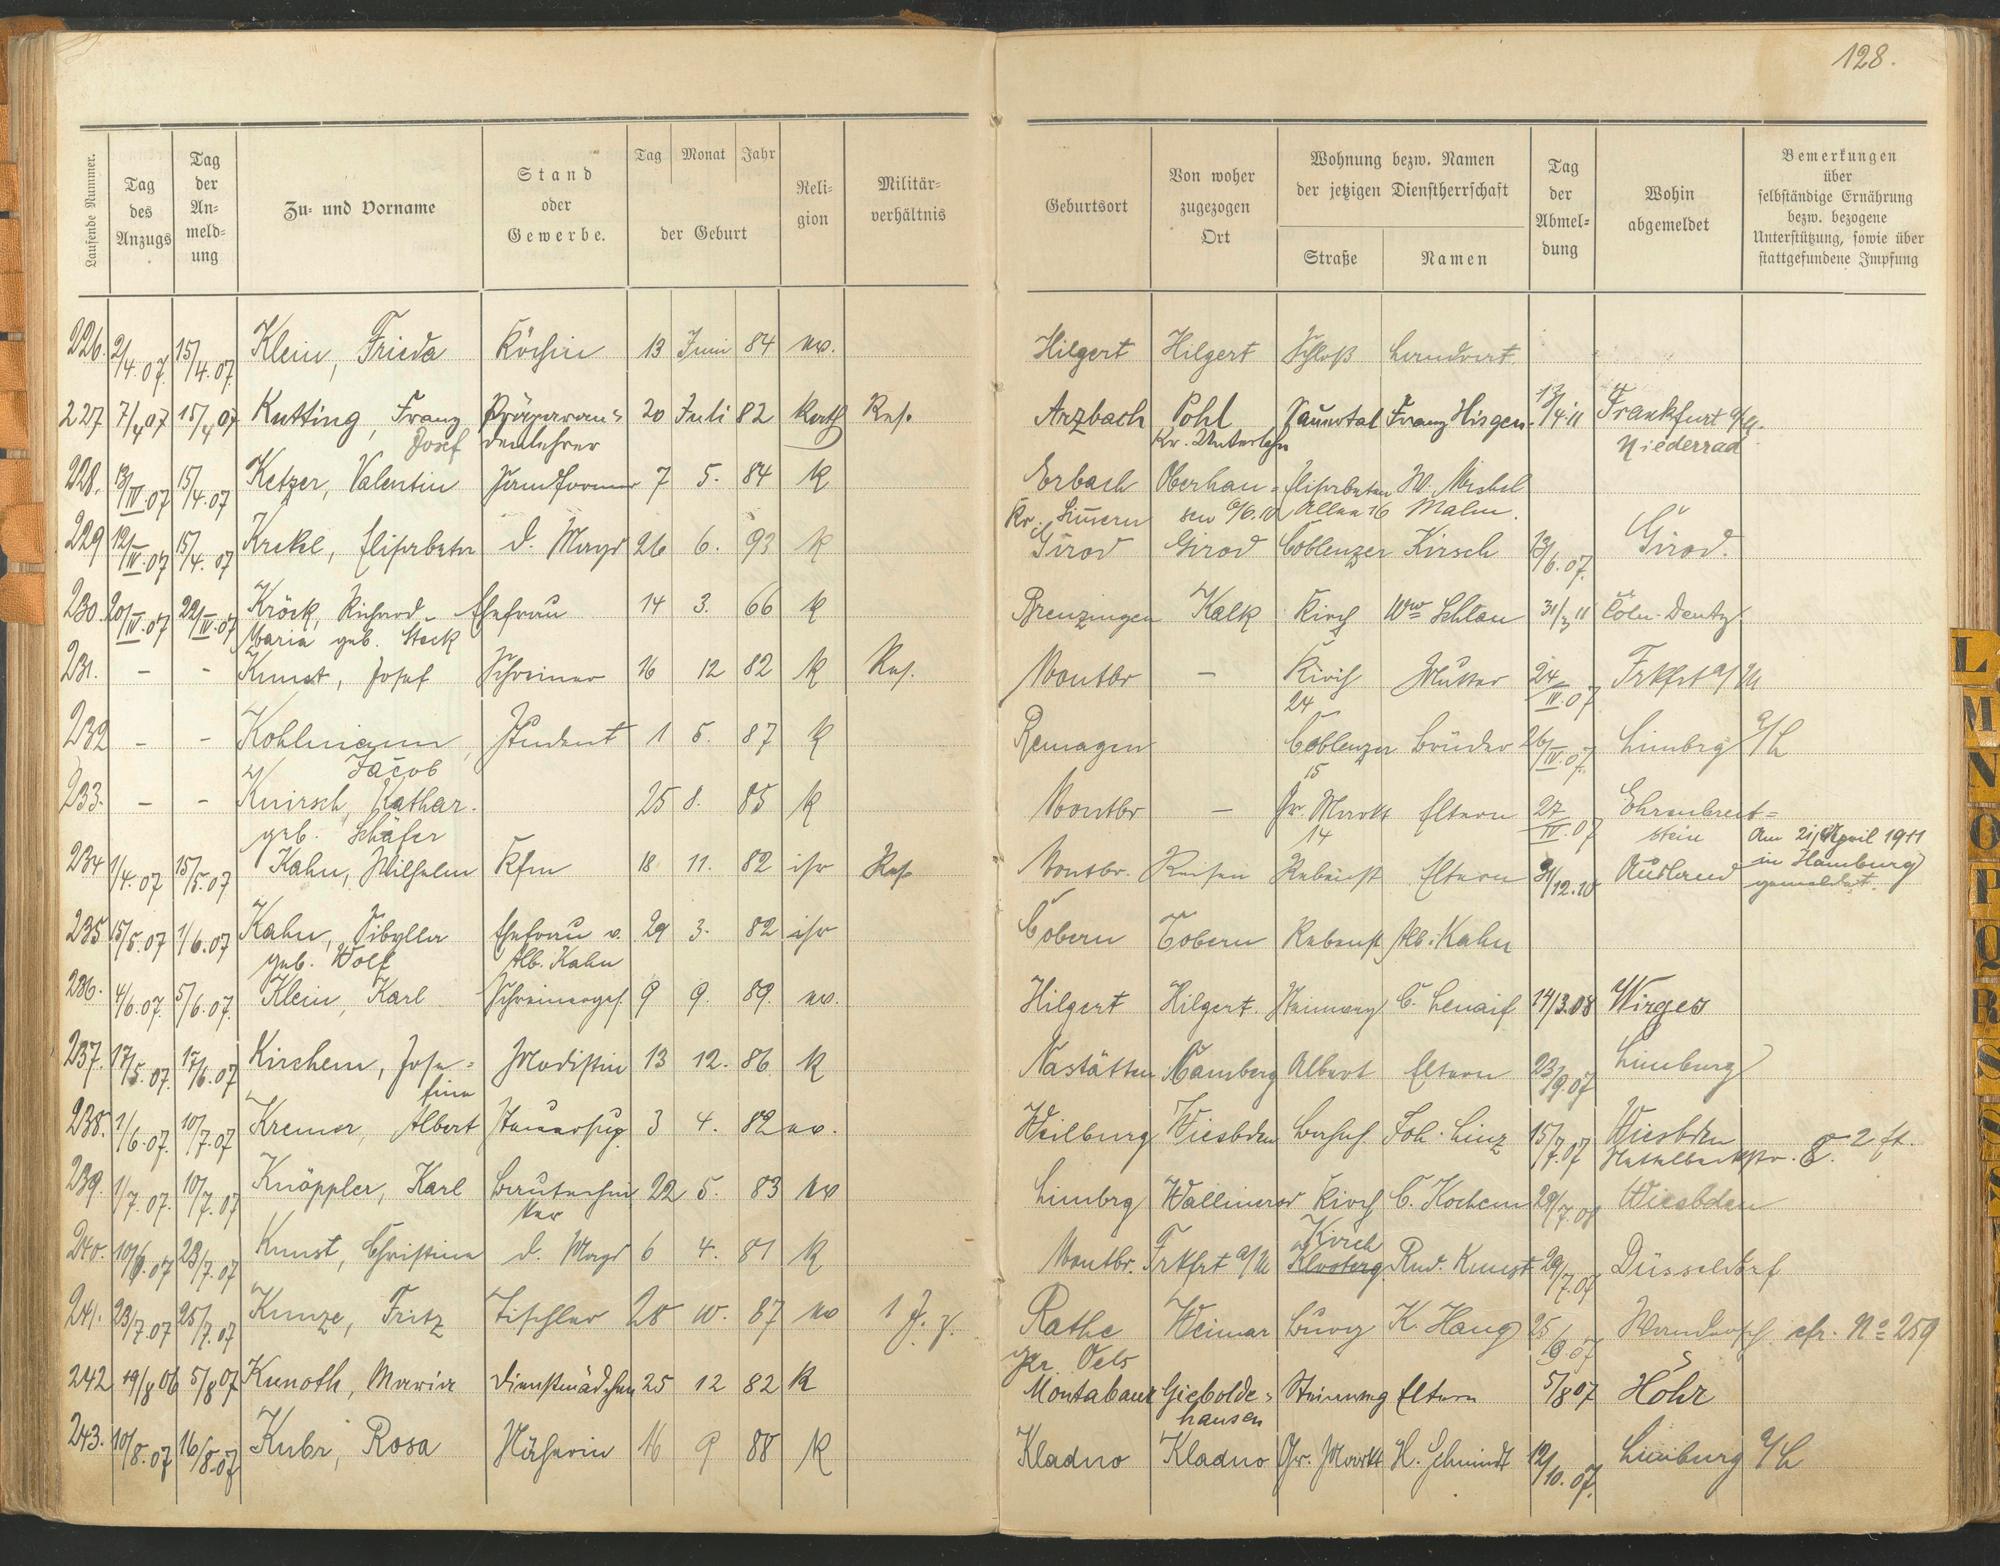 128.
Laufende Nummer.
Tag des Anzugs
Tag der An-meld-ung
Zu- und Vorname
Stand oder Gewerbe.
Tag Monat Jahr
der Geburt
Reli-gion
Militär-verhältnis
Geburtsort
Von woher zugezogen Ort
Wohnung bezw. Namen der jetzigen Dienstherrschaft
Straße Namen
Tag der Abmel-dung
Wohin abgemeldet
Bemerkungen über selbständige Ernährung bezw. bezogene Unterstützung, sowie über stattgefundene Impfung
226. 2/4.07. 15/4.07. Klein, Frieda Köchin 13 Juni 84 ev. Hilgert Hilgert Schloß Landrat.
227 7/4 07 15/4 07 Kutting, Franz Präparan- 20 Juli 82 Kath Res. Arzbach Pohl Sauertal Franz Hisgen. 13/4.11 Frankfurt a/M.
Josef denlehrer Kr. Unterlahn Niederrad
228. 13/IV.07 15/4.07 Ketzer, Valentin 7 5. 84 K Erbach Oberhau- Elisabethen W. Michel
Kr. Limern sen Allee 16 Malm.
229 12/IV.07 15/4.07 Krekel, Elisabeth d. Magd 26 6. 93 K Girod Girod Coblenzer Kirsch 13/6.07. Girod.
230. 20/IV.07 22/IV.07 Kröck, Richard Ehefrau 14 3. 66 K Kalk Kirch Wwe Schlau 31/3 11 Cöln-Deutz
Maria geb. Steck
231. - - Kunst, Josef Schreiner 16 12 82 K Res. Montbr - Kirch Mutter 24/IV.07 Frkfrt a/M
24
232 - - Kohlmann, Student 1 5. 87 K Remagen Coblenzer Brüder 26/IV.07. Limbrg a/L
Jacob 15
233. - - Knirsch, Kathar. 25 8. 85 K Montbr - Gr. Markt Eltern 27/IV.07 Ehrenbreit-
geb. Schäfer 14 stein Am 21. April 1911
234 1/4.07 15/5.07 Kahn, Wilhelm Kfm 18 11. 82 isr Res. Montbr. Reisen Rebenst Eltern 31/12.10 Ausland in Hamburg
gemeldet.
235 15/5.07 1/6.07 Kahn, Sibylla Ehefrau v. 29 3. 82 isr Cobern Cobern Rebenst Alb. Kahn
geb. Wolf Alb. Kahn
236. 4/6.07. 5/6.07. Klein, Karl Schreinerges. 9 9. 89. ev. Hilgert Hilgert. Steinweg C. 14/3.08 Wirges
237. 17/5.07. 17/6.07 Kirchem, Jose- Modistin 13 12. 86 K Nastätten Camberg Albert Eltern 23/9.07 Limburg
fine
238. 1/6.07. 10/7.07 Kremer, Albert 3 4. 82 ev. Weilburg Wiesbden Bahnhf Joh. Linz 15/7.07 Wiesbden
8. 2 ft.
239. 1/7.07. 10/7.07 Knöppler, Karl Bautechni- 22 5. 83 ev Limbrg Wallmerod Kirch C. Kochem 29/7.07 Wiesbden
ker
240. 10/6.07 23/7.07 Kunst, Christine d. Magd 6 4. 81 K Montbr. Frkfrt a/M Kirch Rud. Kunst 29/7.07 Düsseldorf
Klosterg
241. 23/7.07 25/7.07 Kunze, Fritz Tischler 28 10. 87 ev 1 J. z. Rathe Weimar Burg K. Haug 25/9.07 Wandersch cfr. No 259
Kr. Oels
242 19/8 06 5/8 07 Kunoth, Maria Dienstmädchen 25 12 82 K Montabaur Giebolde- Steinweg Eltern 5/8 07 Höhr
hausen
243. 10/8.07 16/8.07 Kubr, Rosa Näherin 16 9 88 K Kladno Kladno Gr. Markt H. Schmidt 12/10.07. Limburg a/L
L
M
N
O
P
Q
R
S